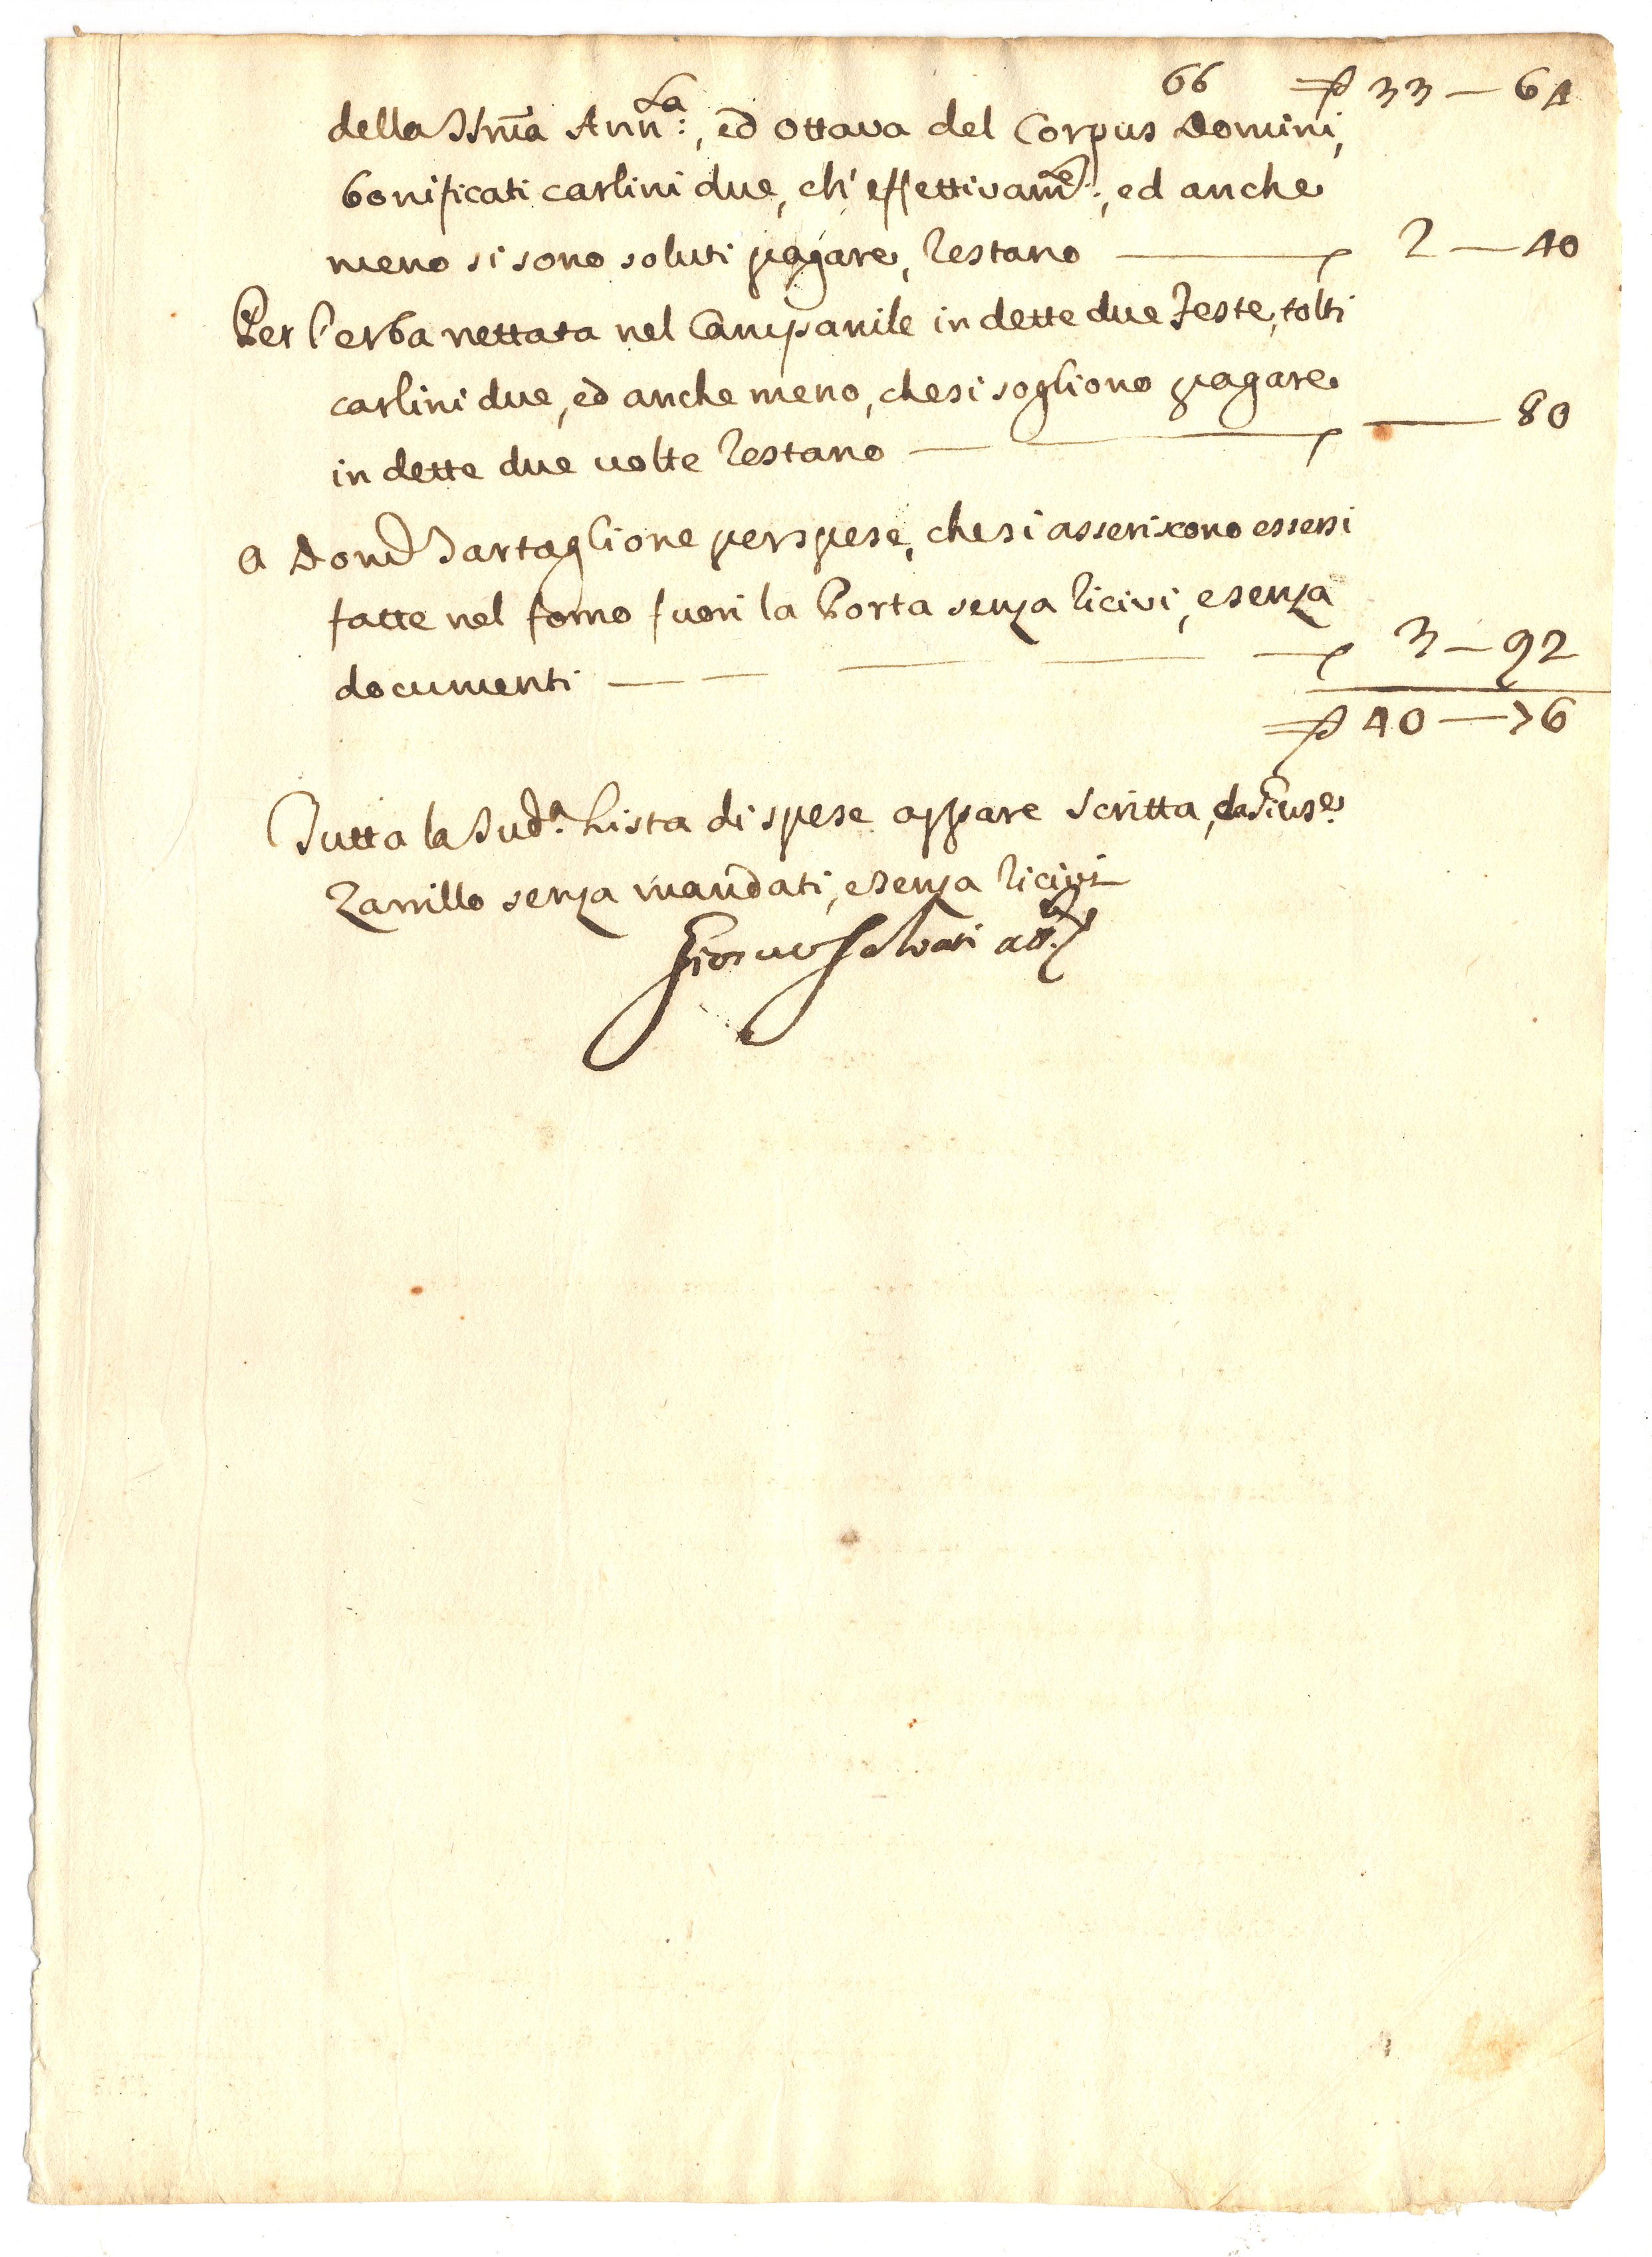 66 ₽ 33 — 64
della SSma Ann:la, ed ottava del Corpus Domini,
bonificati carlini due, ch'effettivam:e, ed anche
meno si sono soluti pagare, restano — 2 — 40
Per l'erba nettata nel Campanile in dette due Feste, tolti
carlini due, ed anche meno, che si sogliono pagare
in dette due volte restano — — 80
A Dom:co Tartaglione per spese, che si asseriscono essersi
fatte nel forno fuori la Porta senza ricivi, e senza
documenti — — 3 — 92
₽ 40 — 76
Tutta la Sud:a Lista di spese appare scritta, da Giuse:
Zarrillo senza mandati, e senza ricivi
Giosue Salvati